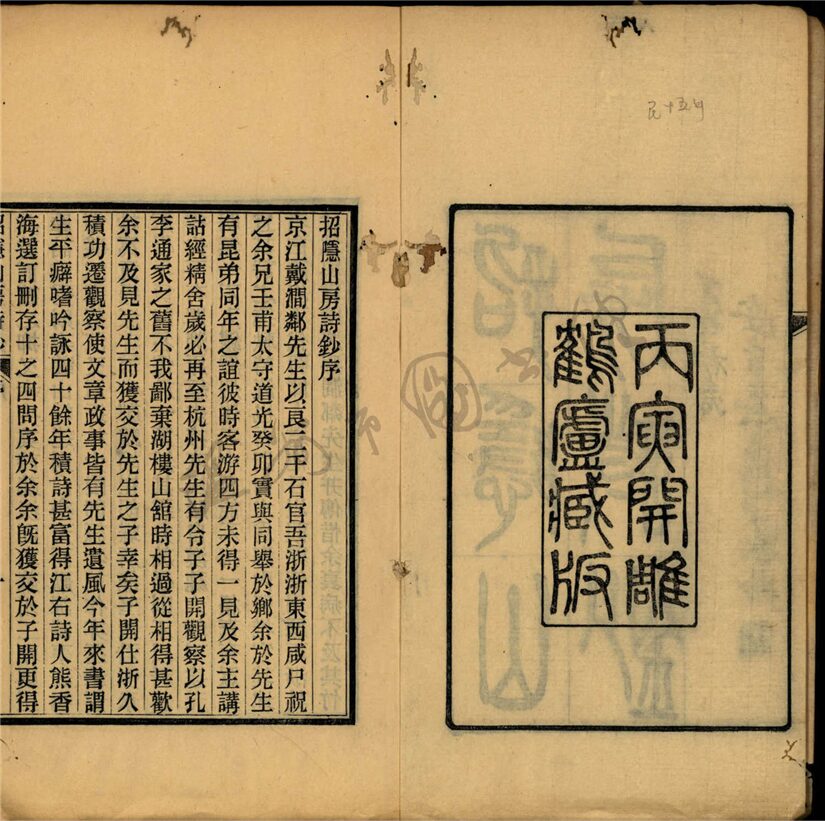 民十五年
丙寅開雕
鶴廬藏版
招隱山房詩鈔序
京江戴澗鄰先生以良二千石官吾浙浙東西咸尸祝
之余兄壬甫太守道光癸卯實與同舉於鄉余於先生
有昆弟同年之誼彼時客游四方未得一見及余主講
詁經精舍歲必再至杭州先生有令子子開觀察以孔
李通家之舊不我鄙棄湖樓山舘時相過從相得甚歡
余不及見先生而獲交於先生之子幸矣子開仕浙久
積功遷觀察使文章政事皆有先生遺風今年來書謂
生平癖嗜吟詠四十餘年積詩甚富得江右詩人熊香
海選訂刪存十之四問序於余余旣獲交於子開更得
招隱山房詩鈔 序 一